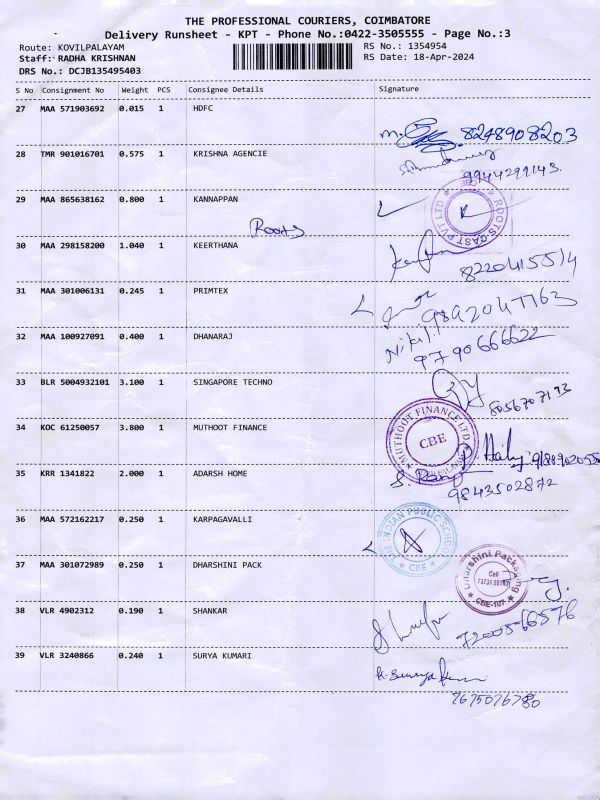 THE PROFESSIONAL COURIERS, COIMBATORE
Delivery Runsheet - KPT - Phone No.:0422-3505555 - Page No.:3
Route: KOVILPALAYAM
RS No.: 1354954
Staff: RADHA KRISHNAN
RS Date: 18-Apr-2024
DRS No.: DCJB135495403
S No Consignment No Weight PCS Consignee Details Signature
27 MAA 571903692 0.015 1 HDFC
8248908203
28 TMR 901016701 0.575 1 KRISHNA AGENCIE
9944299143
29 MAA 865638162 0.800 1 KANNAPPAN
ROOTS CAST PVT LTD
Roots
30 MAA 298158200 1.040 1 KEERTHANA
8220415514
31 MAA 301006131 0.245 1 PRIMTEX
9892047763
32 MAA 100927091 0.400 1 DHANARAJ
Nikil
9790666622
33 BLR 5004932101 3.100 1 SINGAPORE TECHNO
8056707193
34 KOC 61250057 3.800 1 MUTHOOT FINANCE
MUTHOOT FINANCE LTD.
CBE
35 KRR 1341822 2.000 1 ADARSH HOME
9843502872
36 MAA 572162217 0.250 1 KARPAGAVALLI
THE INDIAN PUBLIC SCHOOL
CBE
37 MAA 301072989 0.250 1 DHARSHINI PACK
Dharshini Packaging
Cell
CBE-107
38 VLR 4902312 0.190 1 SHANKAR
7200566576
39 VLR 3240866 0.240 1 SURYA KUMARI
7675076780